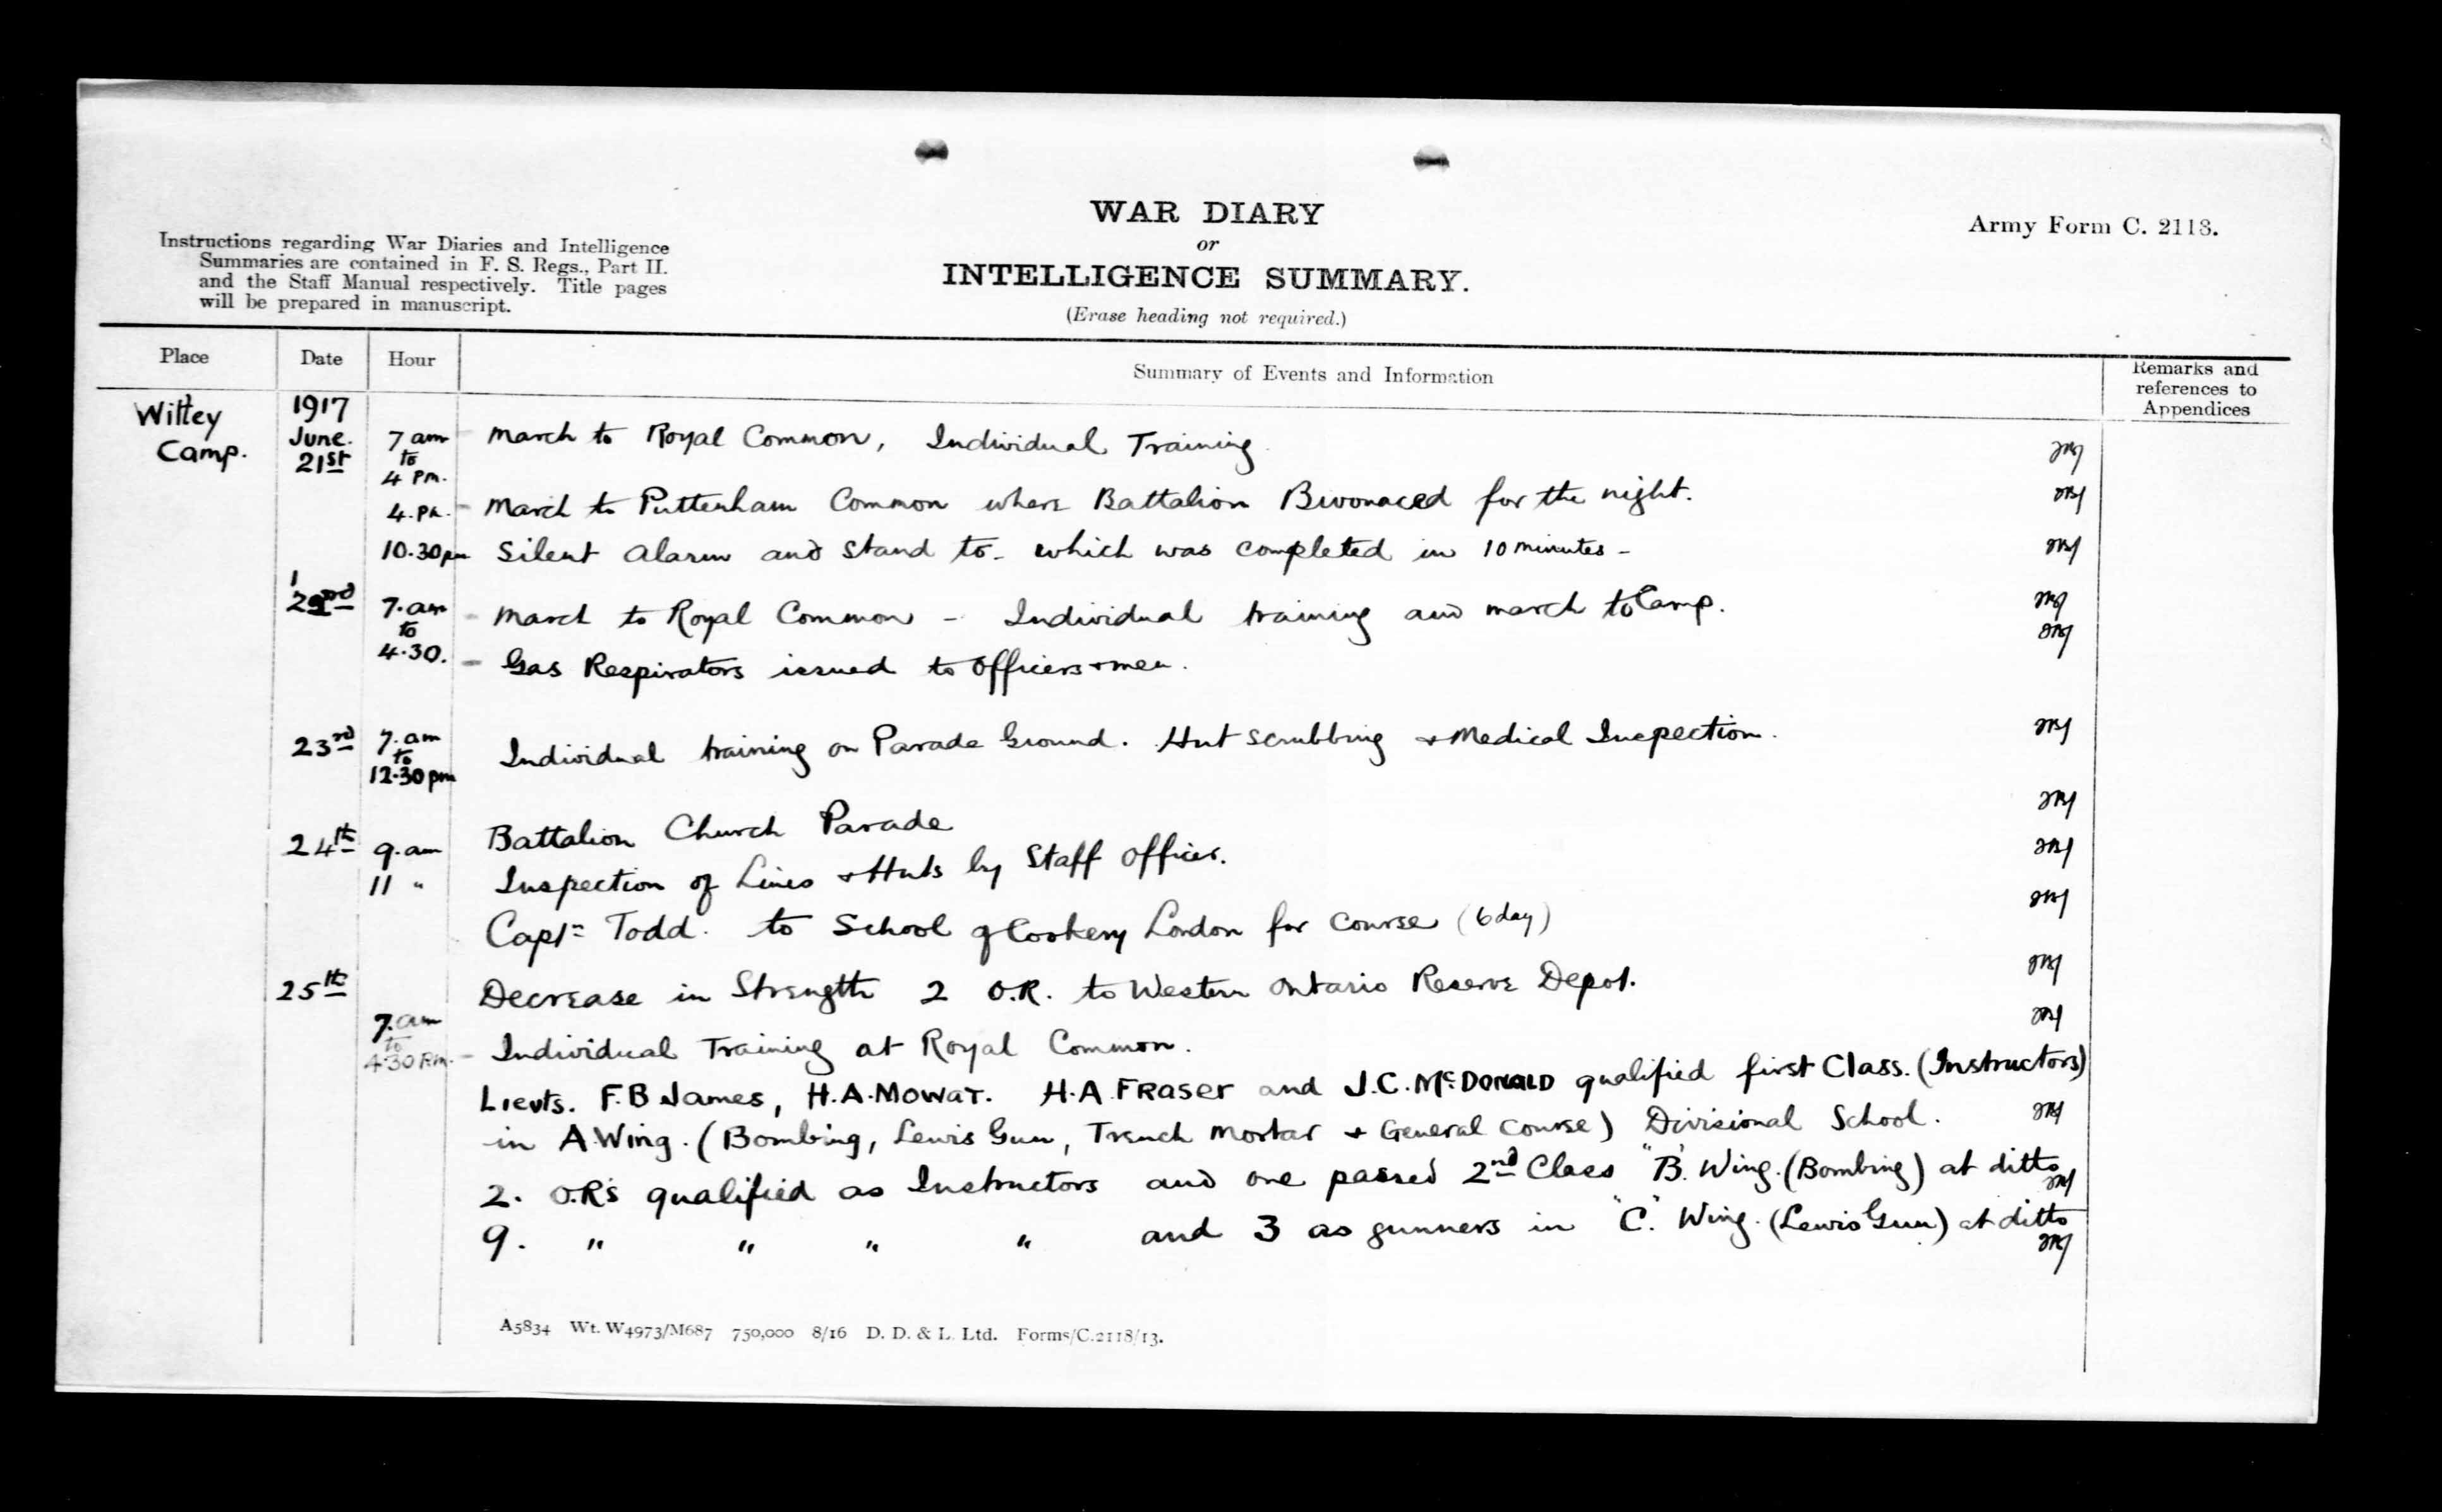 WAR DIARY
or
INTELLIGENCE SUMMARY.
(Erase heading not required.)
Army Form C. 2118.
Instructions regarding War Diaries and Intelligence
Summaries are contained in F. S. Regs., Part II.
and the Staff Manual respectively. Title pages
will be prepared in manuscript.
Place Date Hour Summary of Events and Information Remarks and references to Appendices
Witley Camp. 1917 June. 21st 7 am to 4 Pm. March to Royal Common, Individual Training
4.Pm. - March to Puttenham Common where Battalion Bivouaced for the night.
10.30pm Silent alarm and stand to - which was completed in 10 minutes -
22nd 7.am to 4.30. - March to Royal Common - Individual training and march to Camp.
- Gas Respirators issued to Officers + men.
23rd 7.am to 12.30pm Individual training on Parade Ground. Hut scrubbing + Medical Inspection.
24th 9.am Battalion Church Parade
11 " Inspection of Lines + Huts by Staff Officer.
Captn Todd. to School of Cookery London for course (6 day)
25th Decrease in Strength 2 O.R. to Western Ontario Reserve Depot.
7.am to 4.30 P.m. - Individual Training at Royal Common.
Lieuts. F.B James, H.A. Mowat. H.A Fraser and J.C. McDonald qualified first Class. (Instructors)
in A Wing. (Bombing, Lewis Gun, Trench Mortar + General Course) Divisional School.
2. O.R's qualified as Instructors and one passed 2nd Class "B". Wing. (Bombing) at ditto
9. " " " " and 3 as gunners in "C." Wing. (Lewis Gun) at ditto
A5834 Wt. W4973/M687 750,000 8/16 D. D. & L. Ltd. Forms/C.2118/13.